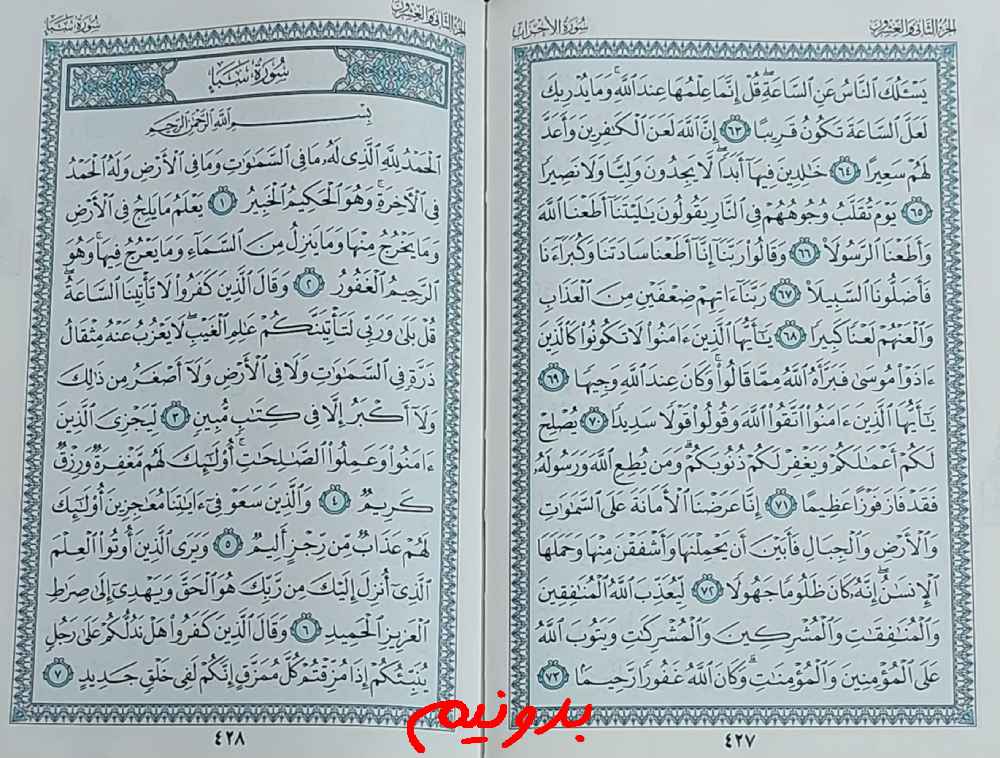 الجزء الثاني والعشرون
سورة الأحزاب
يَسْـَٔلُكَ ٱلنَّاسُ عَنِ ٱلسَّاعَةِۖ قُلْ إِنَّمَا عِلْمُهَا عِندَ ٱللَّهِۚ وَمَا يُدْرِيكَ
لَعَلَّ ٱلسَّاعَةَ تَكُونُ قَرِيبًا ٦٣ إِنَّ ٱللَّهَ لَعَنَ ٱلْكَٰفِرِينَ وَأَعَدَّ
لَهُمْ سَعِيرًا ٦٤ خَٰلِدِينَ فِيهَآ أَبَدًاۖ لَّا يَجِدُونَ وَلِيًّا وَلَا نَصِيرًا
٦٥ يَوْمَ تُقَلَّبُ وُجُوهُهُمْ فِى ٱلنَّارِ يَقُولُونَ يَٰلَيْتَنَآ أَطَعْنَا ٱللَّهَ
وَأَطَعْنَا ٱلرَّسُولَا۠ ٦٦ وَقَالُوا۟ رَبَّنَآ إِنَّآ أَطَعْنَا سَادَتَنَا وَكُبَرَآءَنَا
فَأَضَلُّونَا ٱلسَّبِيلَا۠ ٦٧ رَبَّنَآ ءَاتِهِمْ ضِعْفَيْنِ مِنَ ٱلْعَذَابِ
وَٱلْعَنْهُمْ لَعْنًا كَبِيرًا ٦٨ يَٰٓأَيُّهَا ٱلَّذِينَ ءَامَنُوا۟ لَا تَكُونُوا۟ كَٱلَّذِينَ
ءَاذَوْا۟ مُوسَىٰ فَبَرَّأَهُ ٱللَّهُ مِمَّا قَالُوا۟ۚ وَكَانَ عِندَ ٱللَّهِ وَجِيهًا ٦٩
يَٰٓأَيُّهَا ٱلَّذِينَ ءَامَنُوا۟ ٱتَّقُوا۟ ٱللَّهَ وَقُولُوا۟ قَوْلًا سَدِيدًا ٧٠ يُصْلِحْ
لَكُمْ أَعْمَٰلَكُمْ وَيَغْفِرْ لَكُمْ ذُنُوبَكُمْۗ وَمَن يُطِعِ ٱللَّهَ وَرَسُولَهُۥ
فَقَدْ فَازَ فَوْزًا عَظِيمًا ٧١ إِنَّا عَرَضْنَا ٱلْأَمَانَةَ عَلَى ٱلسَّمَٰوَٰتِ
وَٱلْأَرْضِ وَٱلْجِبَالِ فَأَبَيْنَ أَن يَحْمِلْنَهَا وَأَشْفَقْنَ مِنْهَا وَحَمَلَهَا
ٱلْإِنسَٰنُۖ إِنَّهُۥ كَانَ ظَلُومًا جَهُولًا ٧٢ لِّيُعَذِّبَ ٱللَّهُ ٱلْمُنَٰفِقِينَ
وَٱلْمُنَٰفِقَٰتِ وَٱلْمُشْرِكِينَ وَٱلْمُشْرِكَٰتِ وَيَتُوبَ ٱللَّهُ
عَلَى ٱلْمُؤْمِنِينَ وَٱلْمُؤْمِنَٰتِۗ وَكَانَ ٱللَّهُ غَفُورًا رَّحِيمًۢا ٧٣
٤٢٧
الجزء الثاني والعشرون
سورة سبأ
سُورَةُ سَبَإٍ
بِسْمِ ٱللَّهِ ٱلرَّحْمَٰنِ ٱلرَّحِيمِ
ٱلْحَمْدُ لِلَّهِ ٱلَّذِى لَهُۥ مَا فِى ٱلسَّمَٰوَٰتِ وَمَا فِى ٱلْأَرْضِ وَلَهُ ٱلْحَمْدُ
فِى ٱلْءَاخِرَةِۚ وَهُوَ ٱلْحَكِيمُ ٱلْخَبِيرُ ١ يَعْلَمُ مَا يَلِجُ فِى ٱلْأَرْضِ
وَمَا يَخْرُجُ مِنْهَا وَمَا يَنزِلُ مِنَ ٱلسَّمَآءِ وَمَا يَعْرُجُ فِيهَاۚ وَهُوَ
ٱلرَّحِيمُ ٱلْغَفُورُ ٢ وَقَالَ ٱلَّذِينَ كَفَرُوا۟ لَا تَأْتِينَا ٱلسَّاعَةُۖ
قُلْ بَلَىٰ وَرَبِّى لَتَأْتِيَنَّكُمْ عَٰلِمِ ٱلْغَيْبِۖ لَا يَعْزُبُ عَنْهُ مِثْقَالُ
ذَرَّةٍ فِى ٱلسَّمَٰوَٰتِ وَلَا فِى ٱلْأَرْضِ وَلَآ أَصْغَرُ مِن ذَٰلِكَ
وَلَآ أَكْبَرُ إِلَّا فِى كِتَٰبٍ مُّبِينٍ ٣ لِّيَجْزِىَ ٱلَّذِينَ
ءَامَنُوا۟ وَعَمِلُوا۟ ٱلصَّٰلِحَٰتِۚ أُو۟لَٰٓئِكَ لَهُم مَّغْفِرَةٌ وَرِزْقٌ
كَرِيمٌ ٤ وَٱلَّذِينَ سَعَوْ فِىٓ ءَايَٰتِنَا مُعَٰجِزِينَ أُو۟لَٰٓئِكَ
لَهُمْ عَذَابٌ مِّن رِّجْزٍ أَلِيمٌ ٥ وَيَرَى ٱلَّذِينَ أُوتُوا۟ ٱلْعِلْمَ
ٱلَّذِىٓ أُنزِلَ إِلَيْكَ مِن رَّبِّكَ هُوَ ٱلْحَقَّ وَيَهْدِىٓ إِلَىٰ صِرَٰطِ
ٱلْعَزِيزِ ٱلْحَمِيدِ ٦ وَقَالَ ٱلَّذِينَ كَفَرُوا۟ هَلْ نَدُلُّكُمْ عَلَىٰ رَجُلٍ
يُنَبِّئُكُمْ إِذَا مُزِّقْتُمْ كُلَّ مُمَزَّقٍ إِنَّكُمْ لَفِى خَلْقٍ جَدِيدٍ ٧
٤٢٨
بدونیم